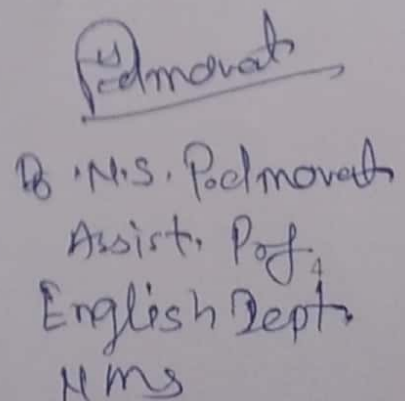 Padmavati
Dr. N.S. Padmavati
Assist. Prof,
English Dept.
NMS